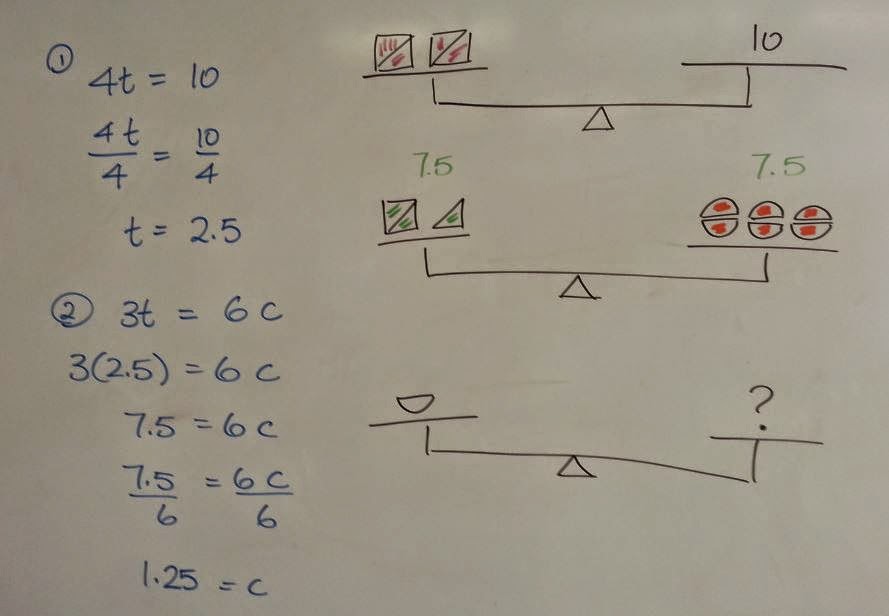 ①
4t = 10
4t/4 = 10/4
t = 2.5
② 3t = 6c
3(2.5) = 6c
7.5 = 6c
7.5/6 = 6c/6
1.25 = c
10
7.5 7.5
?